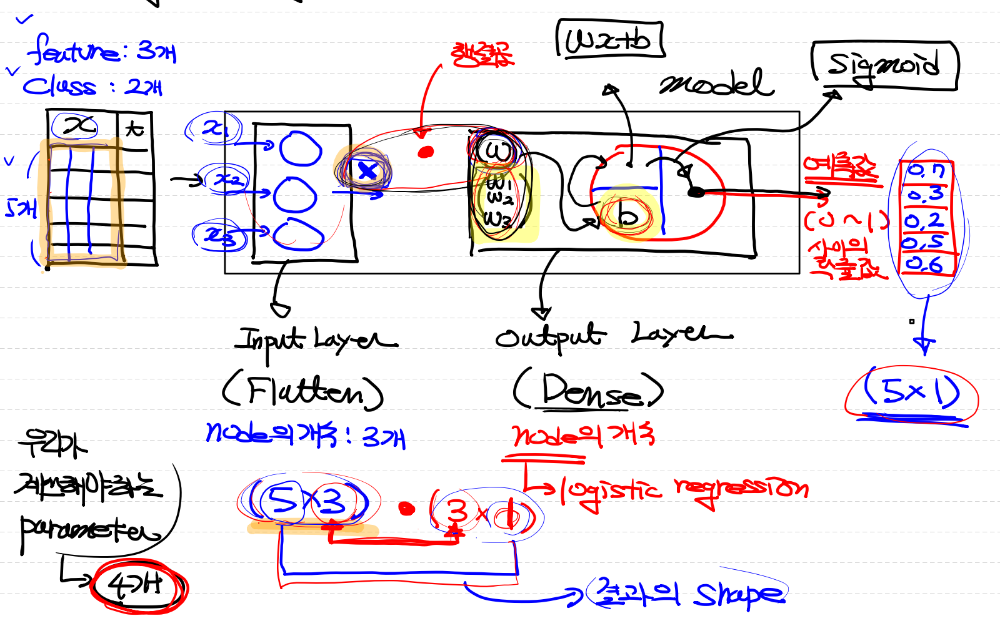 feature: 3개
Class : 2개
x t
5개
x₁
x₂
x₃
행렬곱
X
W
W₁
W₂
W₃
Wx+b
model
Sigmoid
b
예측값
(0~1)
사이의
확률값
0.7
0.3
0.2
0.5
0.6
(5×1)
Input Layer
(Flatten)
node의개수: 3개
Output Layer
(Dense)
node의 개수
logistic regression
우리가
계산해야하는
parameter
4개
(5×3) • (3×1)
결과의 Shape